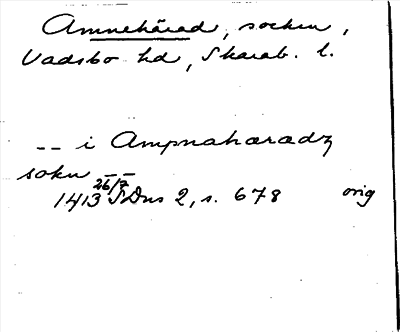 Amnehärad, socken,
Vadsbo hd, Skarab. l.
-- i Ampnaharadz
sokn
1413 26/7 SDns 2, s. 678 orig